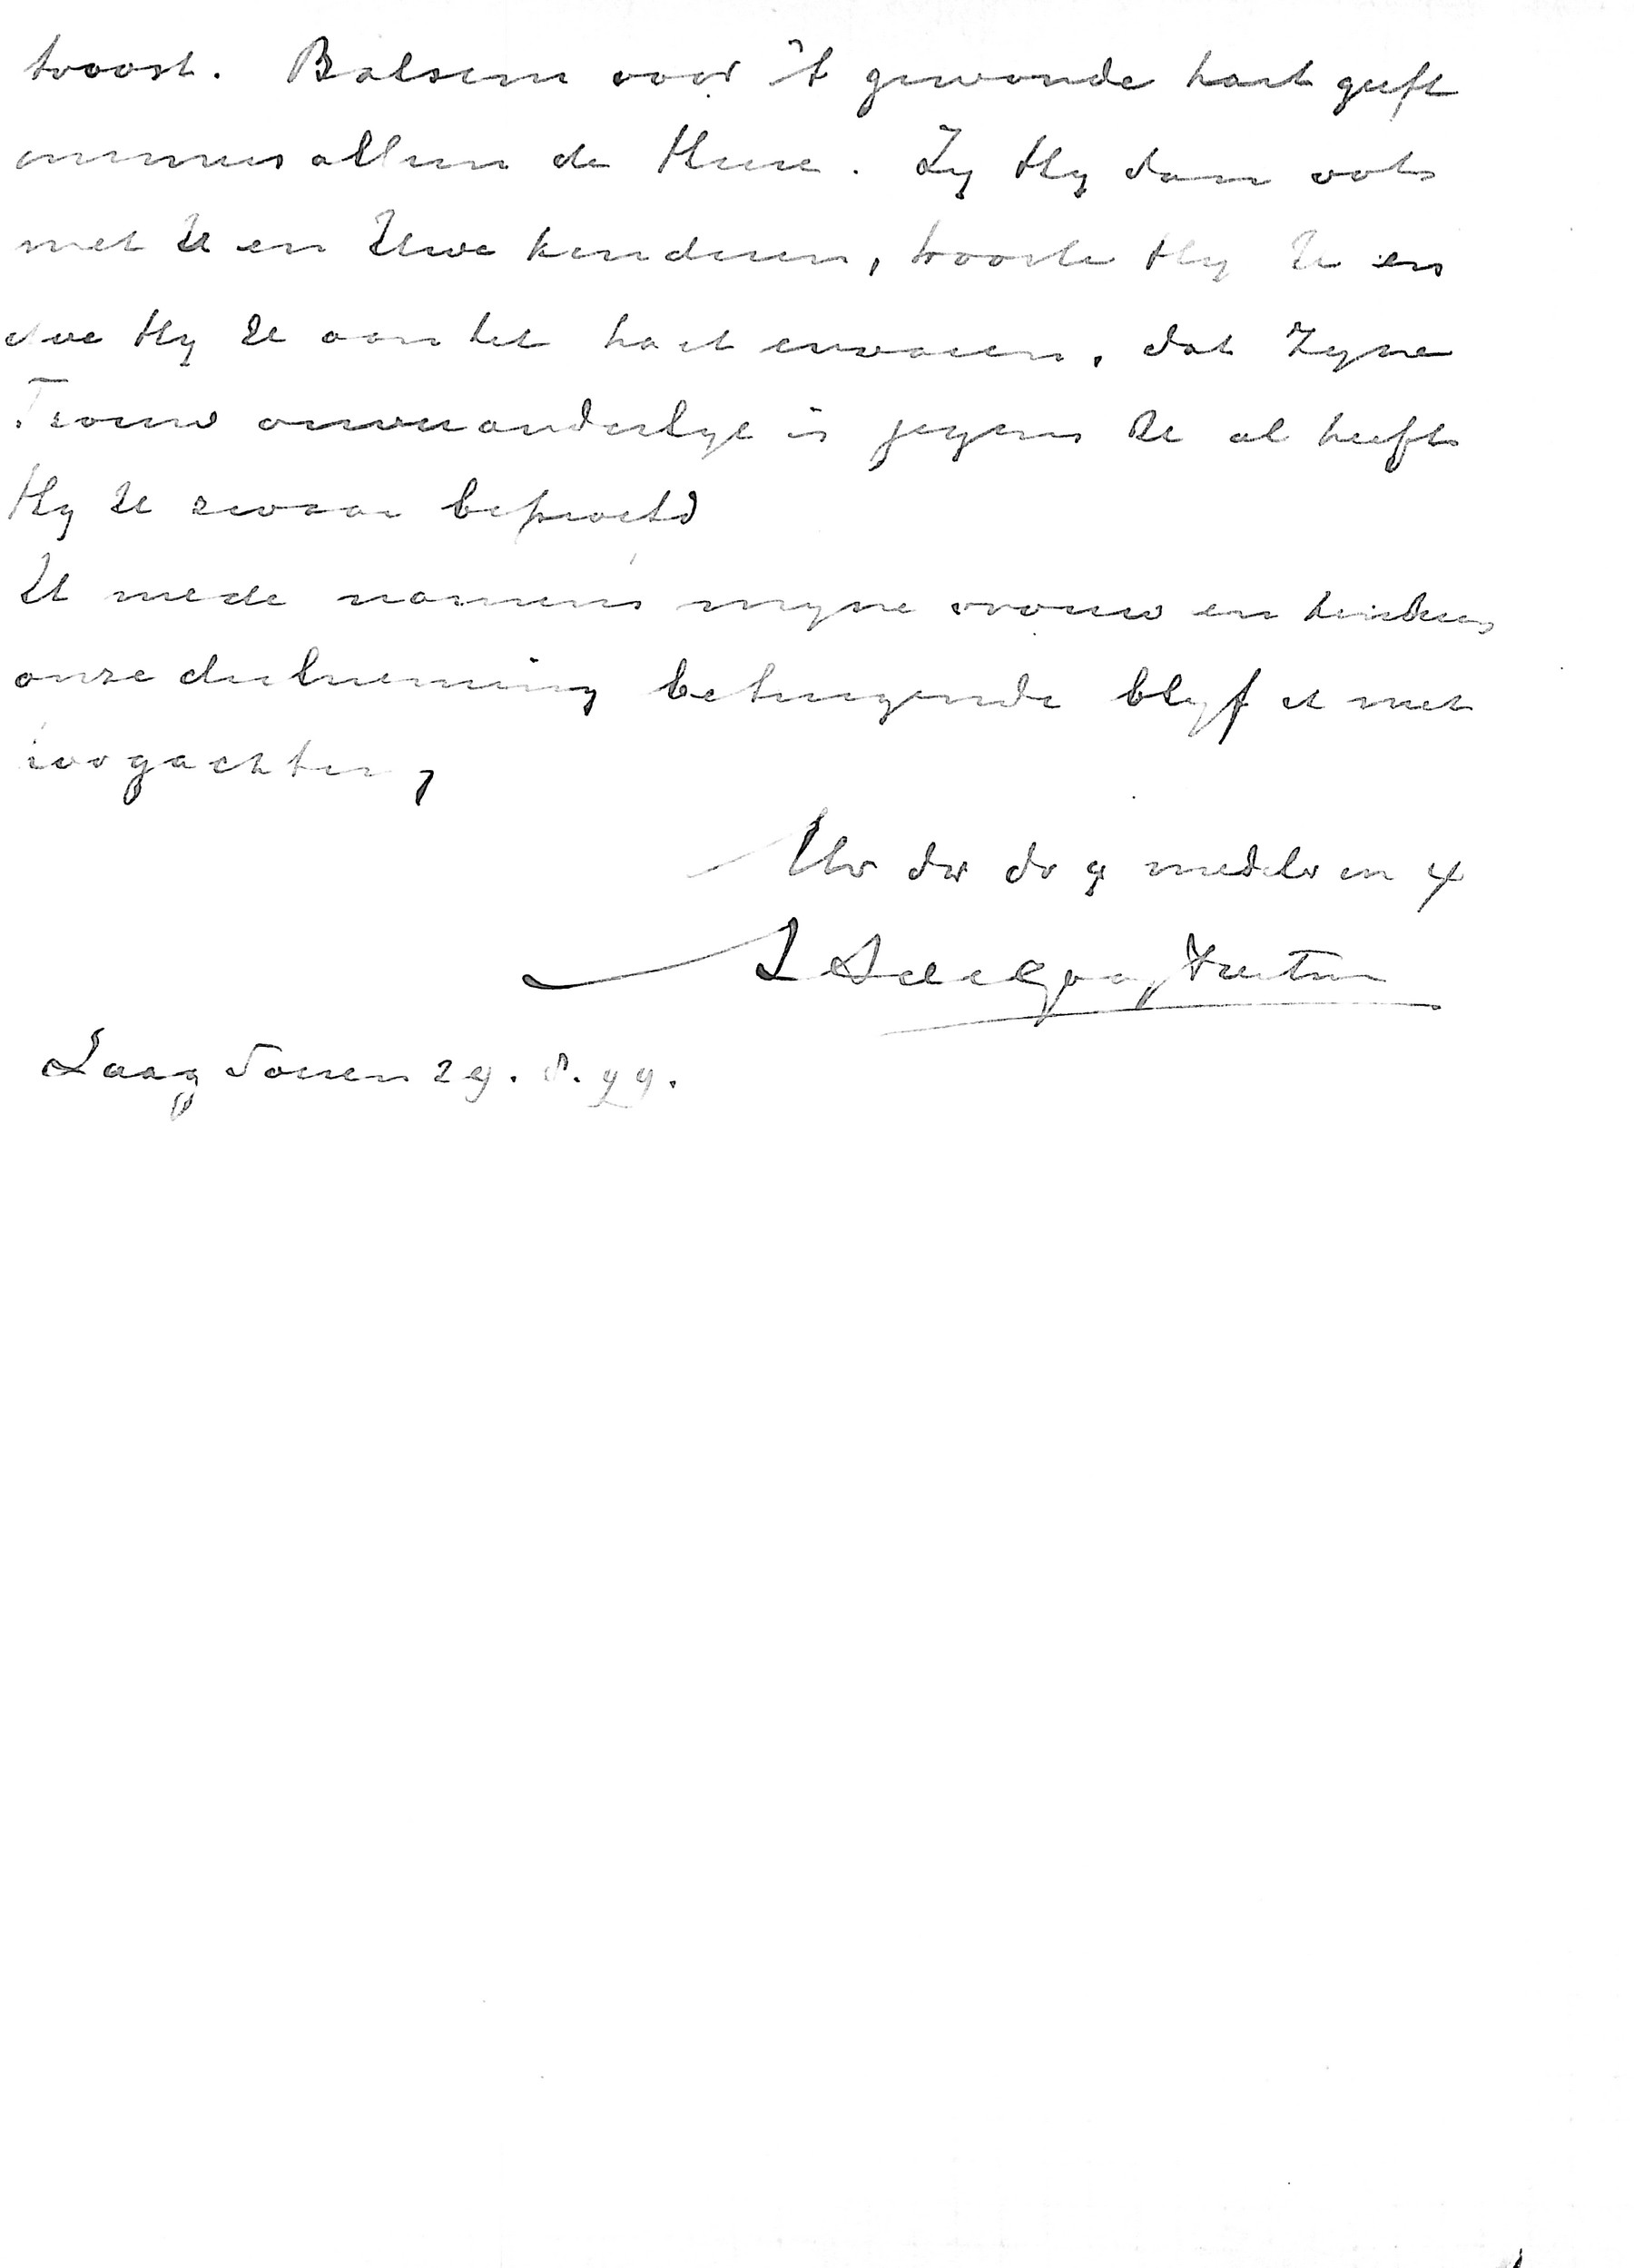 troost. Balsem voor 't gewonde hart geeft
immers alleen de Heere. Zy Hy dan ook
met U en Uwe kinderen, trooste Hy U en
doe Hy U aan het hart ervaren, dat Zyne
Trouw onveranderlyk is jegens U al heeft
Hy U zwaar beproefd
U mede namens myne vrouw en kinderen
onze deelneming betuigende blyf ik met
hoogachting,
Uw dw dr
Laag Soeren 29. 8. 99.